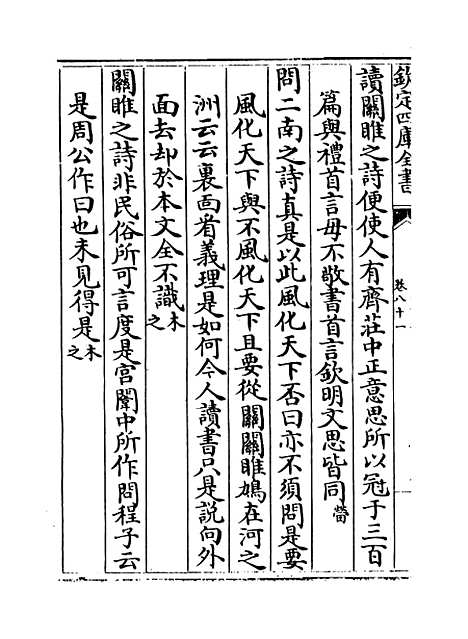 欽定四庫全書
卷八十一
讀關雎之詩便使人有齊莊中正意思所以冠于三百
篇與禮首言毋不敬書首言欽明文思皆同㽦
問二南之詩真是以此風化天下否曰亦不須問是要
風化天下與不風化天下且要從關關雎鳩在河之
洲云云裏面看義理是如何今人讀書只是說向外
面去却於本文全不識木之
關雎之詩非民俗所可言度是宮闈中所作問程子云
是周公作曰也未見得是木之